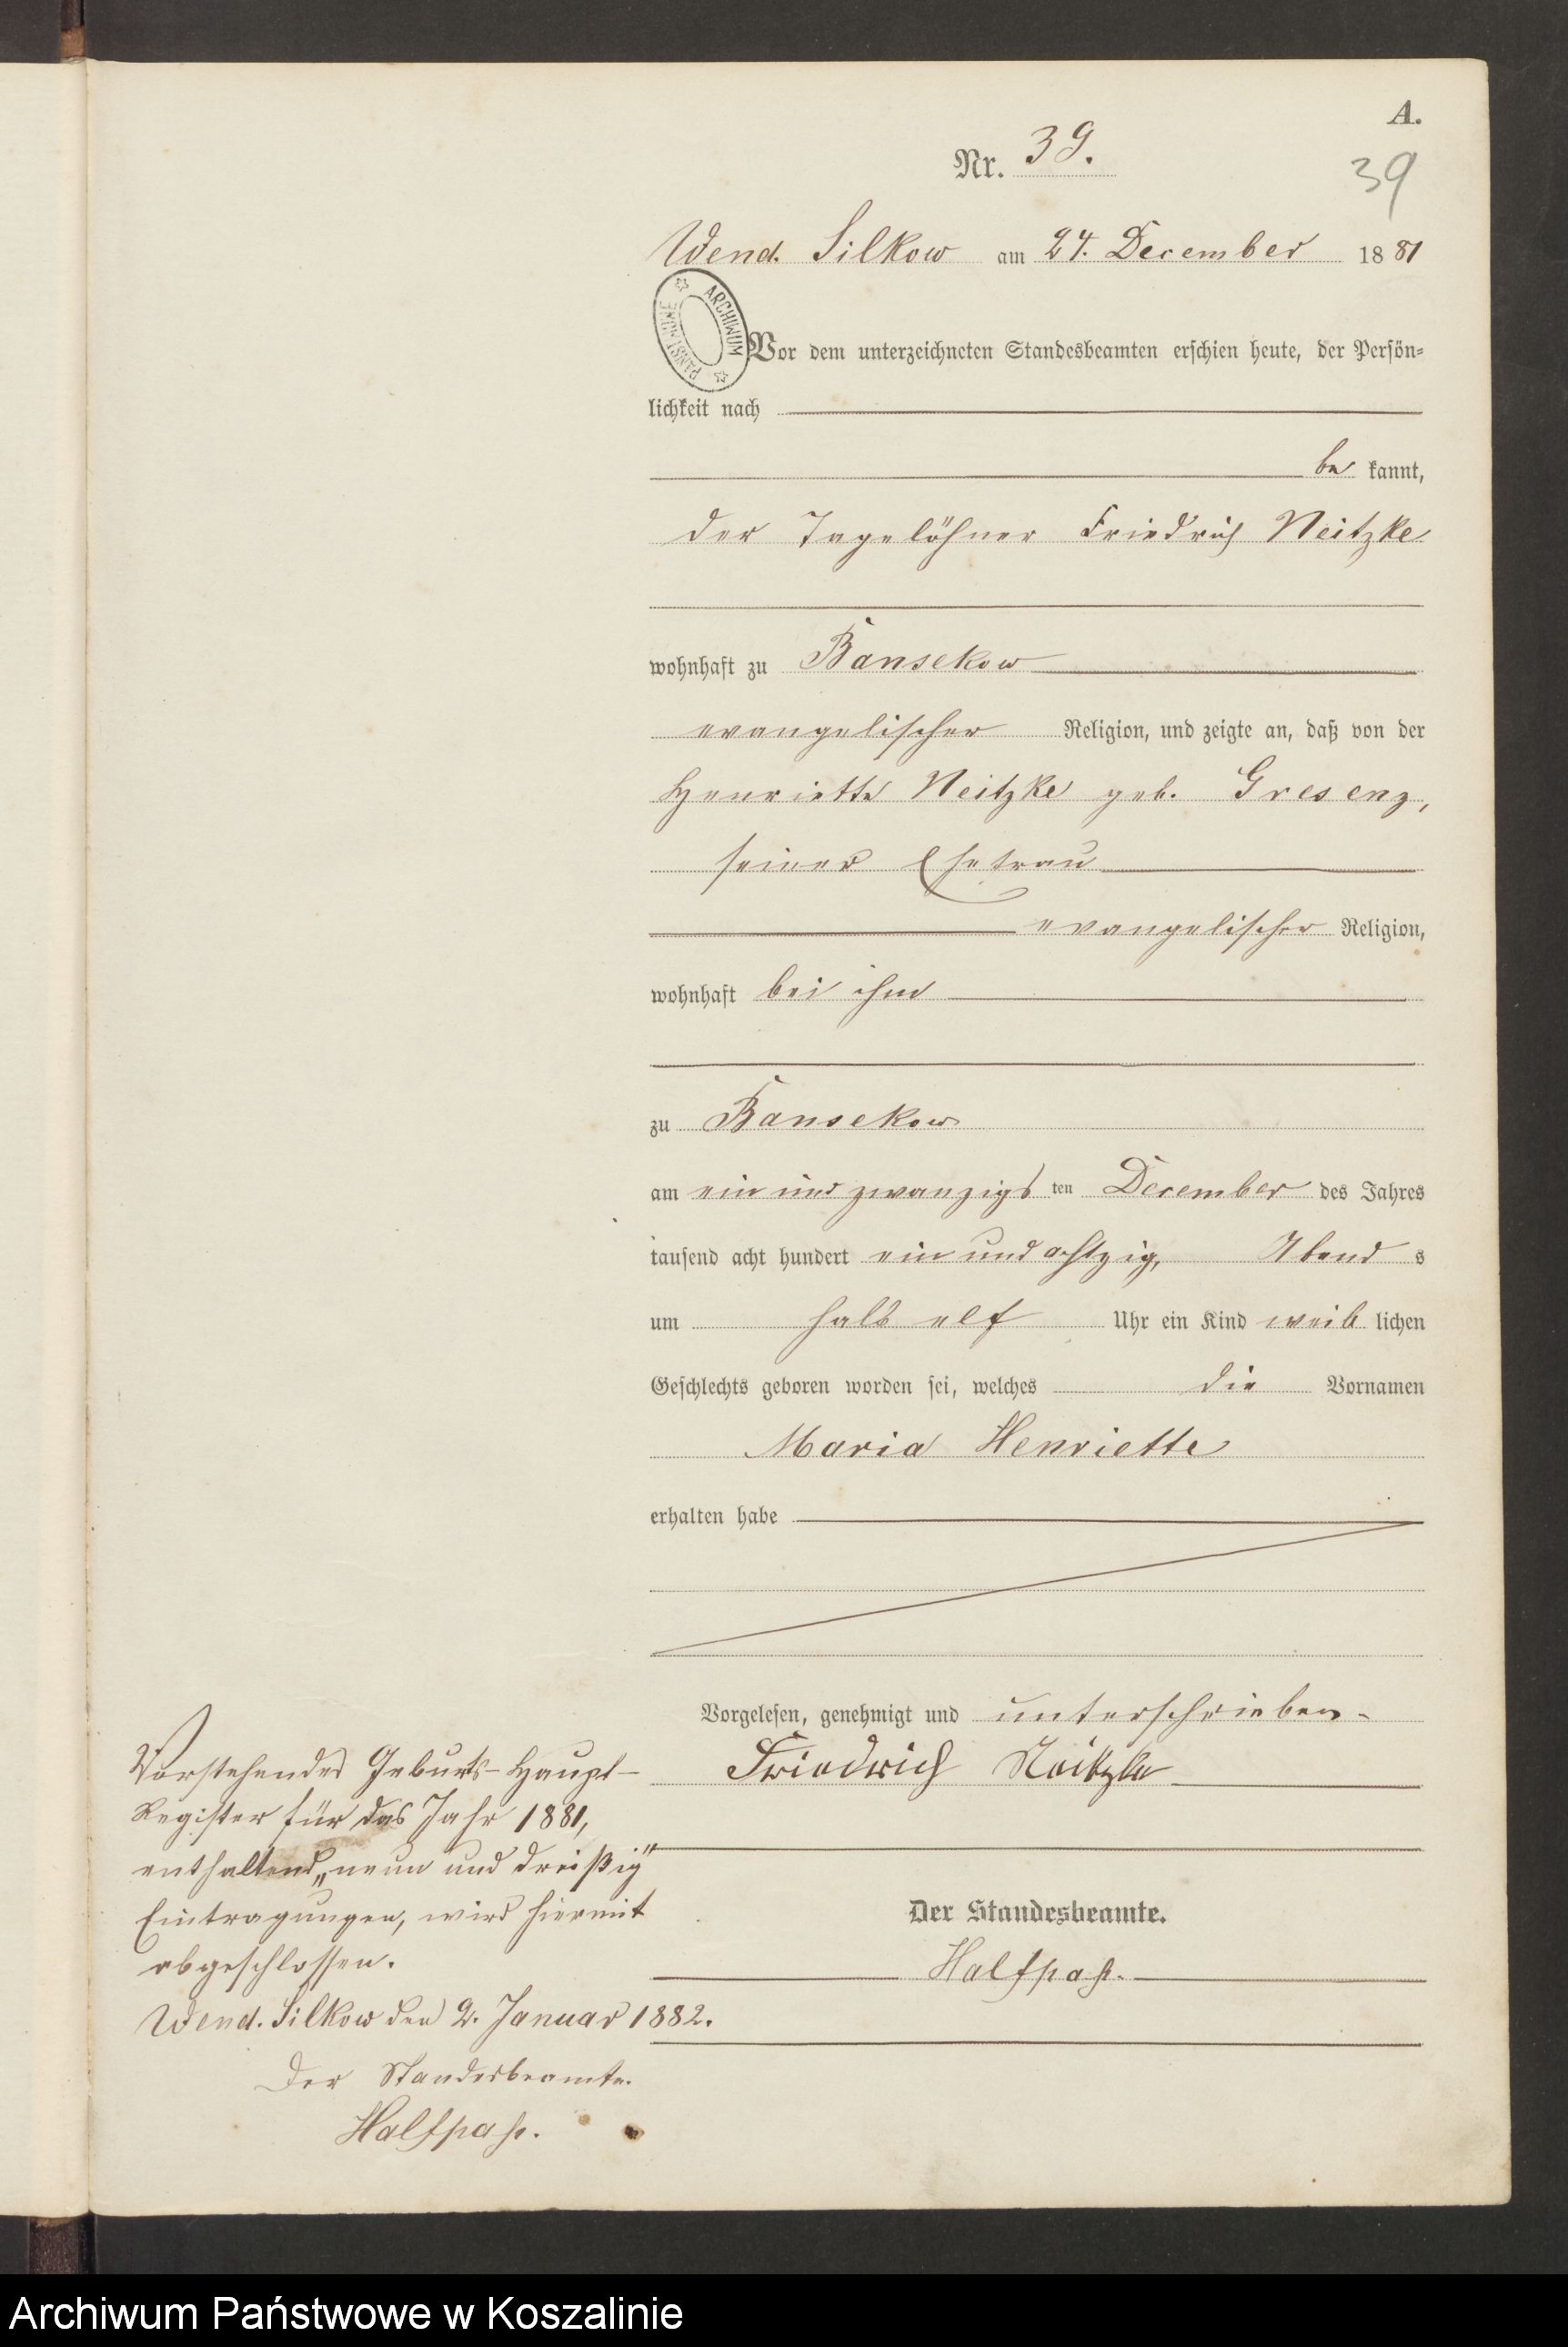 A.
Nr. 39.
39
Wend. Silkow am 24. December 1881
ARCHIWUM PAŃSTWOWE
Vor dem unterzeichneten Standesbeamten erschien heute, der Persön-
lichkeit nach
be kannt,
der Tagelöhner Friedrich Neitzke
wohnhaft zu Bansekow
evangelischer Religion, und zeigte an, daß von der
Henriette Neitzke geb. Gresenz,
seiner Ehefrau
evangelischer Religion,
wohnhaft bei ihm
zu Bansekow
am ein und zwanzigs ten December des Jahres
tausend acht hundert ein und achtzig, Abend s
um halb elf Uhr ein Kind weib lichen
Geschlechts geboren worden sei, welches die Vornamen
Maria Henriette
erhalten habe
Vorgelesen, genehmigt und unterschrieben.
Friedrich Neitzke
Der Standesbeamte.
Halfpap.
Vorstehendes Geburts-Haupt-
Register für das Jahr 1881,
enthaltend „neun und dreißig"
Eintragungen, wird hiermit
abgeschlossen.
Wend. Silkow den 2. Januar 1882.
Der Standesbeamte.
Halfpap.
Archiwum Państwowe w Koszalinie